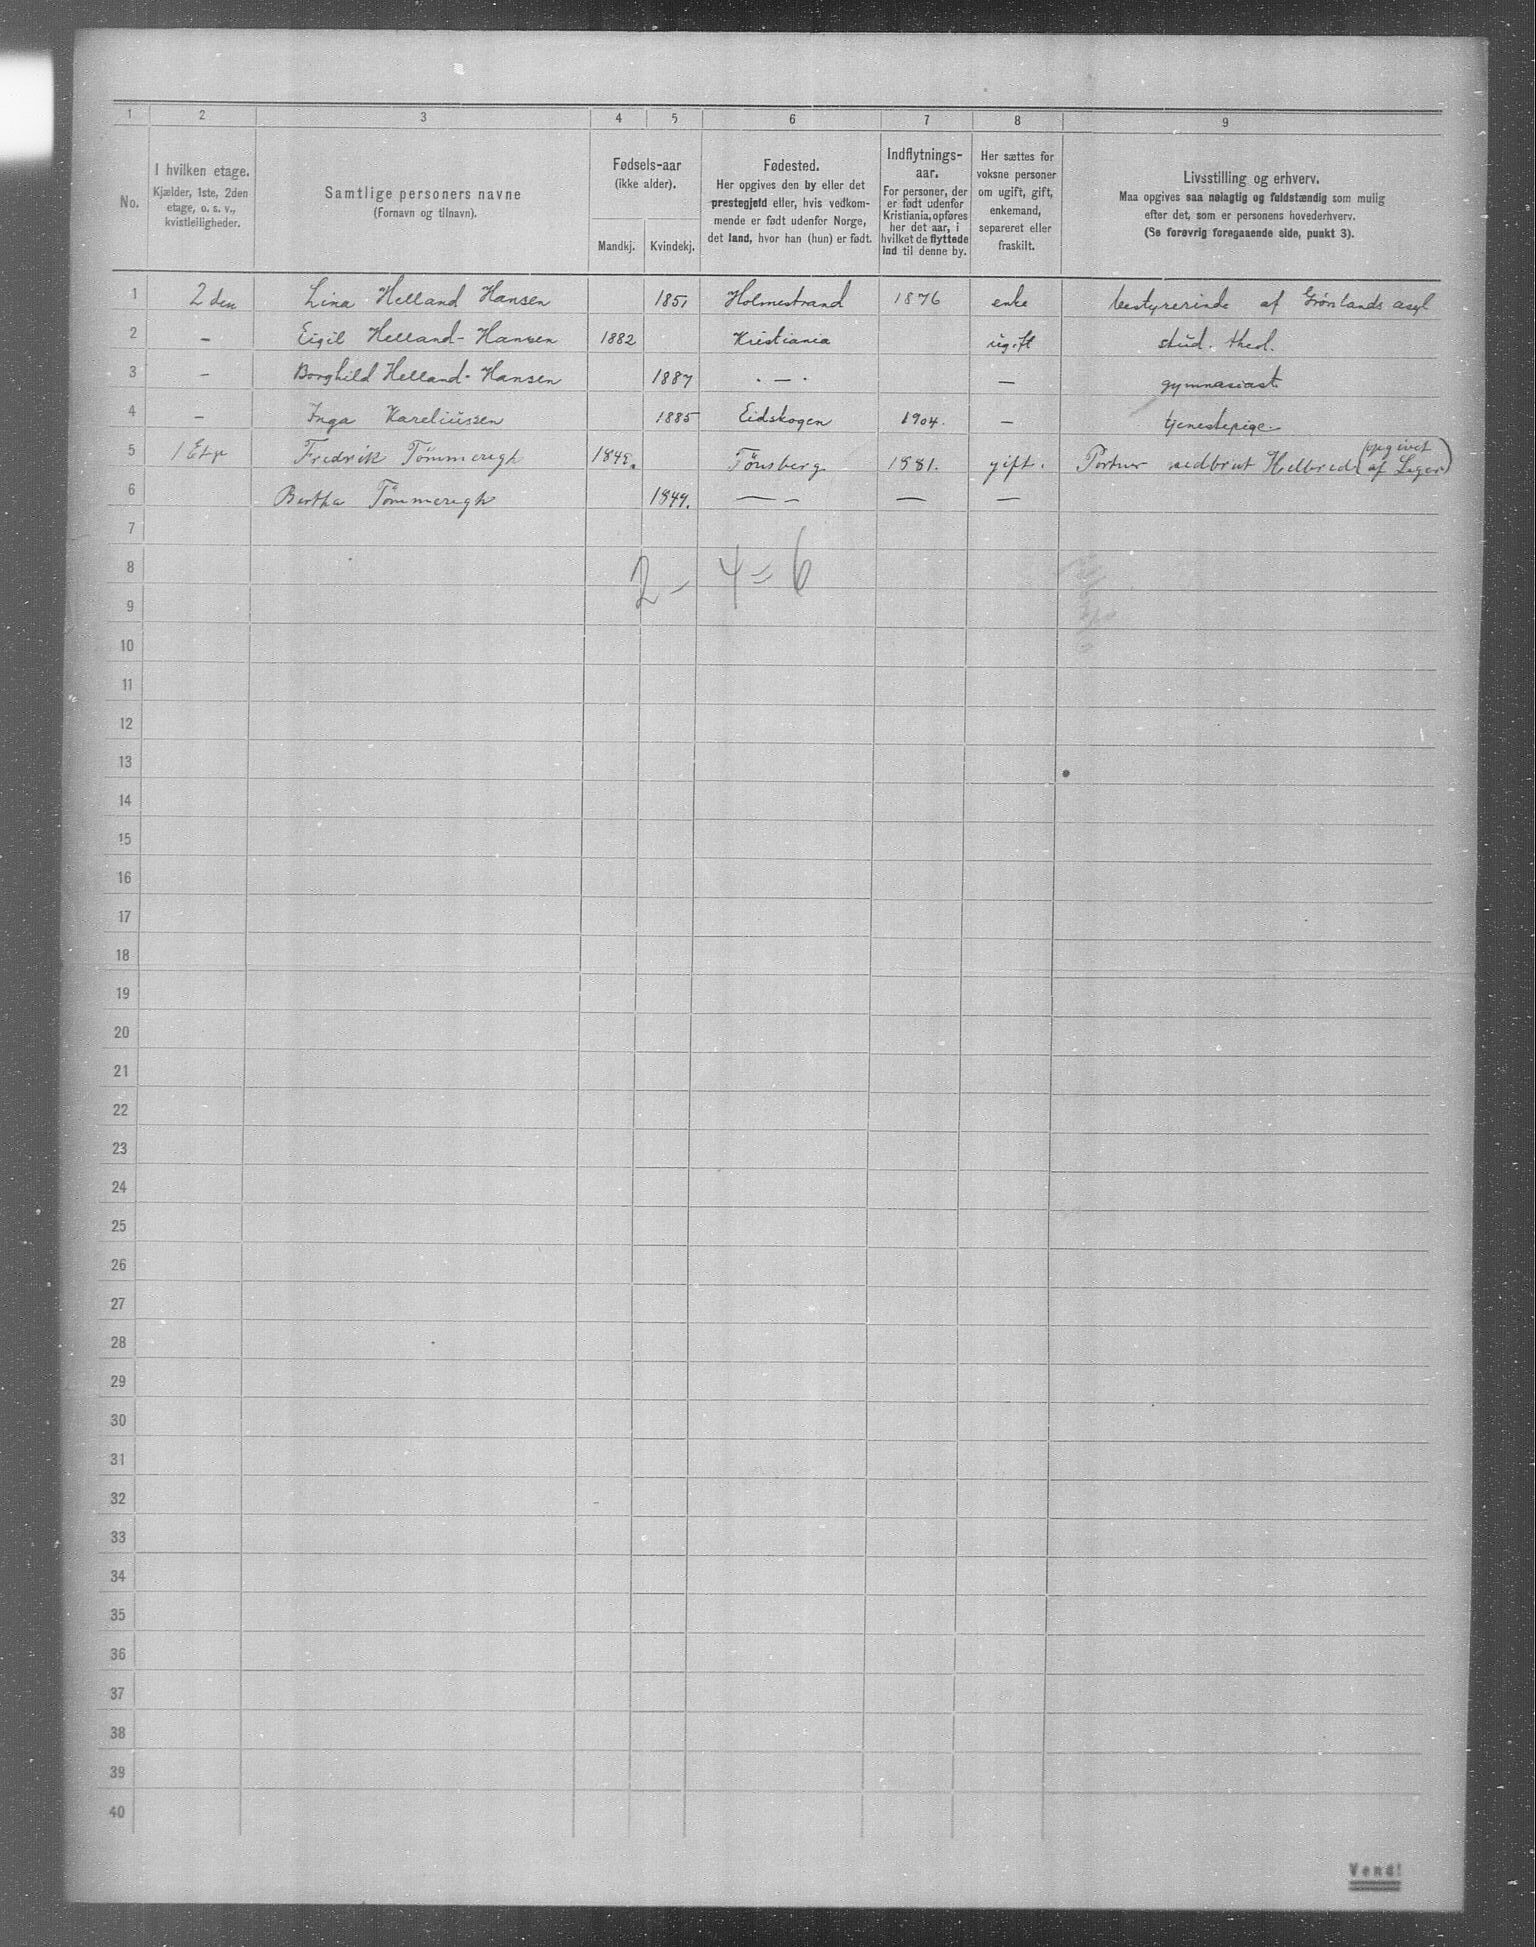 1 2 3 4 5 6 7 8 9
No.
I hvilken etage.
Kjælder, 1ste, 2den
etage, o. s. v.,
kvistleiligheder.
Samtlige personers navne
(Fornavn og tilnavn).
Fødsels-aar
(ikke alder).
Mandkj. Kvindekj.
Fødested.
Her opgives den by eller det
prestegjeld eller, hvis vedkom-
mende er født udenfor Norge,
det land, hvor han (hun) er født.
Indflytnings-
aar.
For personer, der
er født udenfor
Kristiania, opføres
her det aar, i
hvilket de flyttede
ind til denne by.
Her sættes for
voksne personer
om ugift, gift,
enkemand,
separeret eller
fraskilt.
Livsstilling og erhverv.
Maa opgives saa nøiagtig og fuldstændig som mulig
efter det, som er personens hovederhverv.
(Se forøvrig foregaaende side, punkt 3).
1 2den Lina Helland Hansen 1851 Holmestrand 1876 enke bestyrerinde af Grønlands asyl
2 – Eigil Helland-Hansen 1882 Kristiania ugift stud. theol.
3 – Borghild Helland-Hansen 1887 . – . — gymnasiast
4 – Inga Kareliussen 1885 Eidskogen 1904. — tjenestepige
5 1 Etg Fredrik Tömmeregh Tönsberg 1881. gift. Portner nedbrut Helbred (opgivet
af Læger)
6 Bertha Tömmeregh 1849. — – — —
7
8
2 – 4 = 6
9
10
11
12
13
14
15
16
17
18
19
20
21
22
23
24
25
26
27
28
29
30
31
32
33
34
35
36
37
38
39
40
Vend!